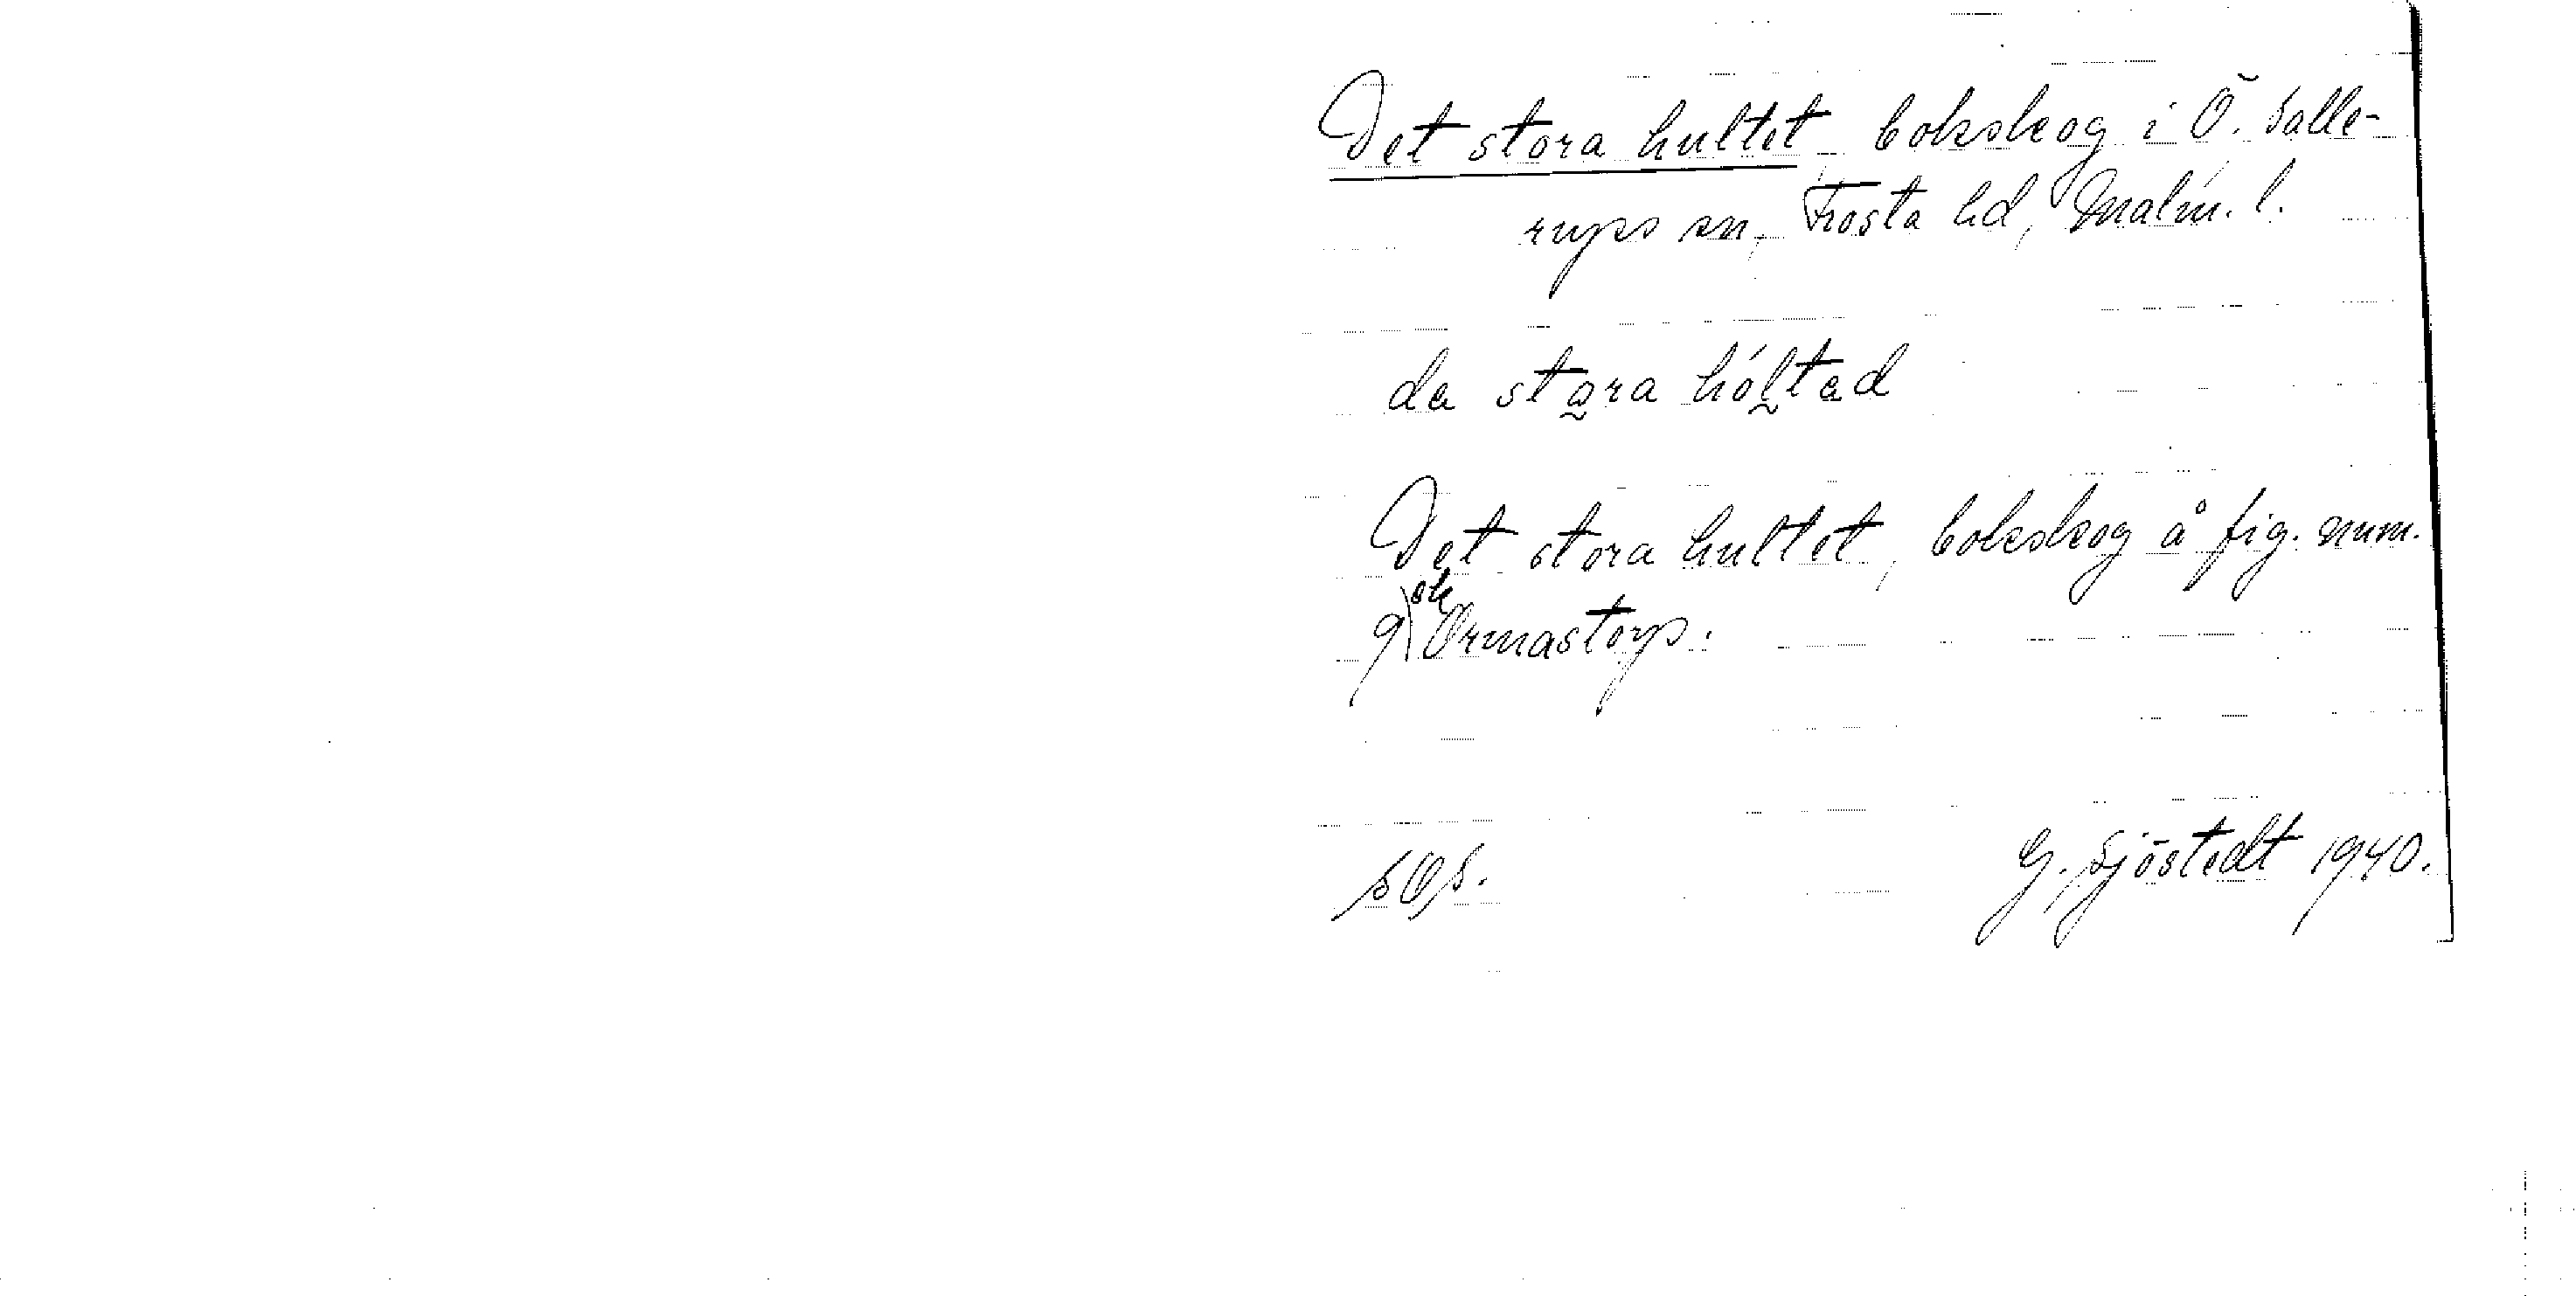 Det stora hultet, bokskog i Ö. Salle-
rups sn, Frosta hd, Malm. l.
da stora hóltad
Det stora hultet, bokskog å fig. num.
9) ok Ormastorp.
sOs. G. Sjöstedt 1940.